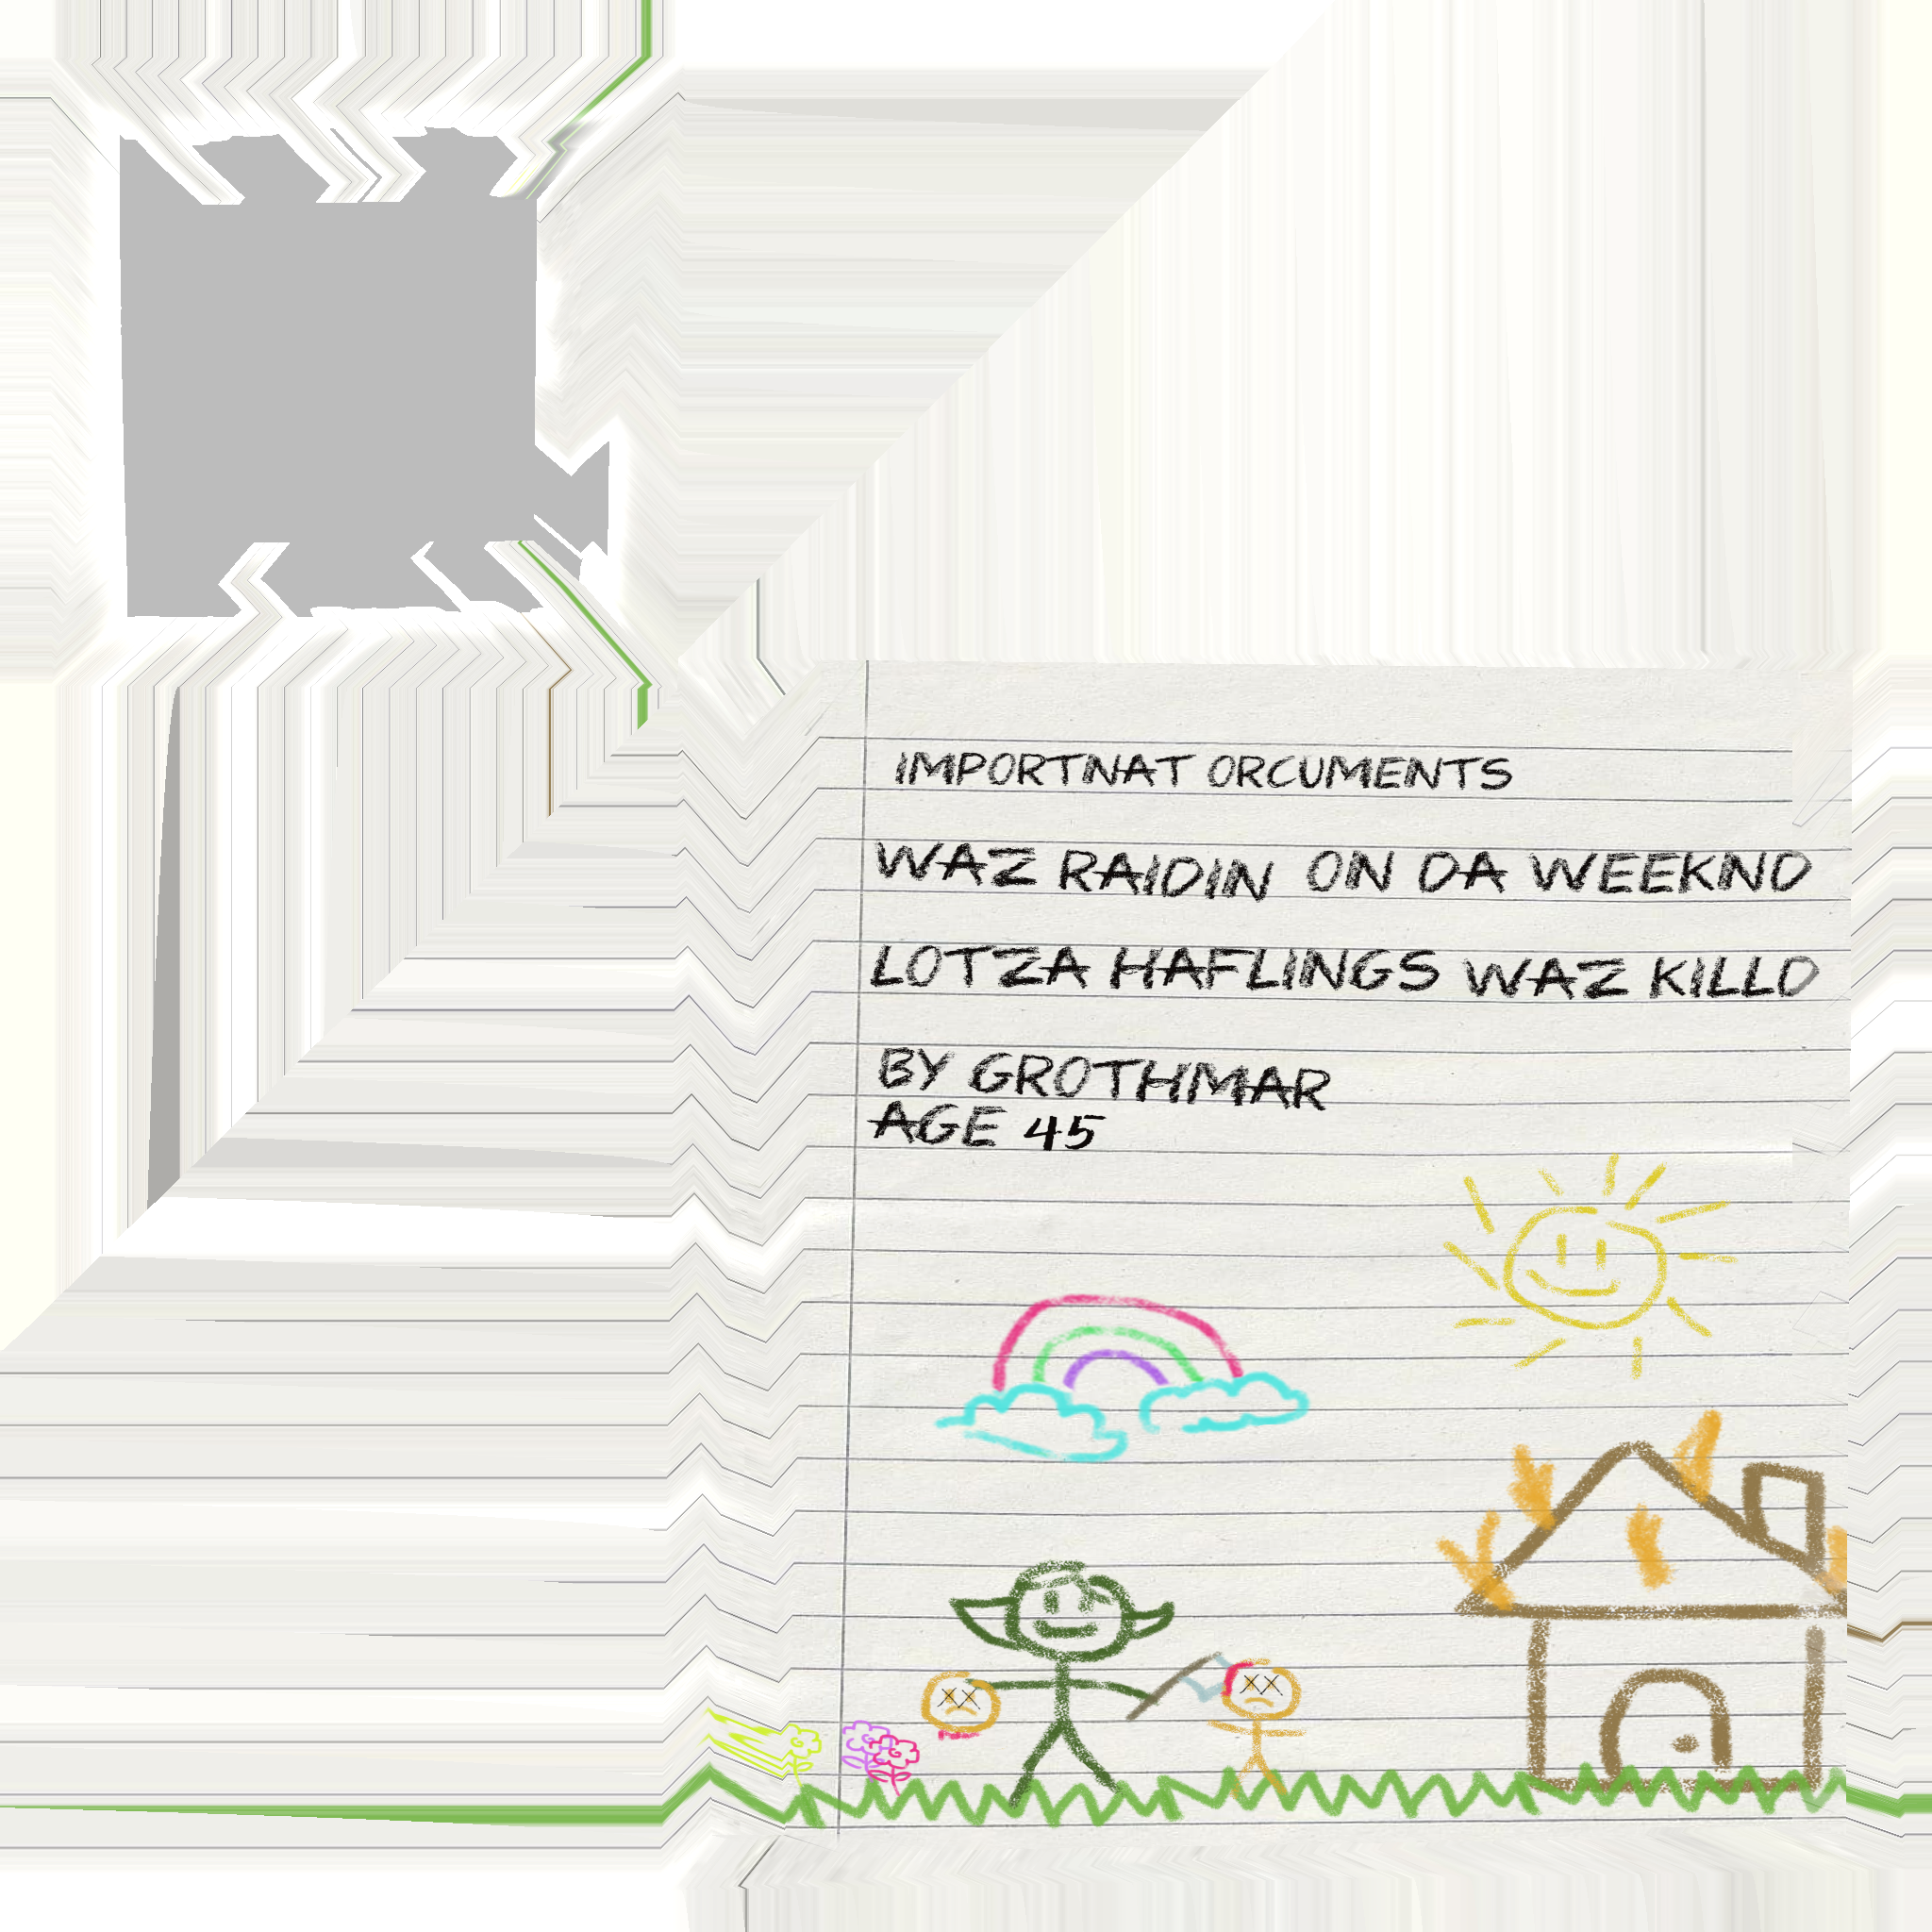 IMPORTNAT ORCUMENTS
WAZ RAIDIN ON DA WEEKND
LOTZA HAFLINGS WAZ KILLD
BY GROTHMAR
AGE 45